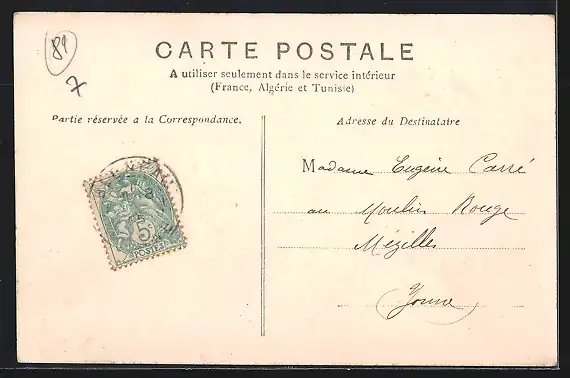 89
7
CARTE POSTALE
A utiliser seulement dans le service intérieur
(France, Algérie et Tunisie)
Partie réservée a la Correspondance.
Adresse du Destinataire
Madame Eugène Carré
au Moulin Rouge
Mézilles
(Yonne)
5
POSTES